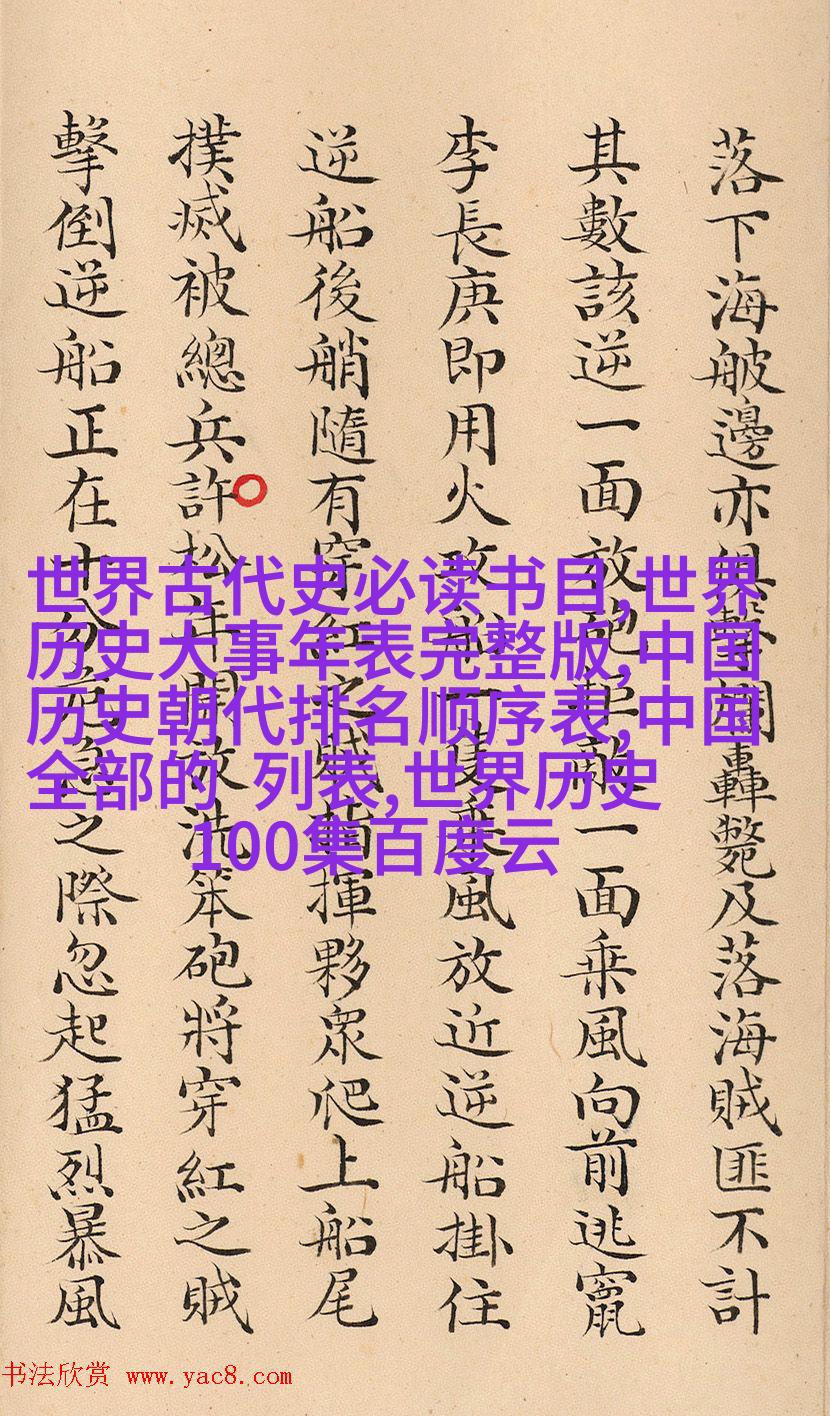 落下海邊亦俱擊爛轟斃及落海賊匪不計
其數該逆一面放砲拒敵一面乘風向前逃竄
李長庚即用火攻船一隻乘風放近逆船掛住
逆船後艄隨有穿紅之賊指揮夥眾爬上船尾
撲滅被總兵許松年開放洗笨砲將穿紅之賊
擊倒逆船正在十分危急之際忽起猛烈暴風
世界古代史必读书目,世界
历史大事年表完整版,中国
历史朝代排名顺序表,中国
全部的 列表,世界历史
100集百度云
书法欣赏 www.yac8.com